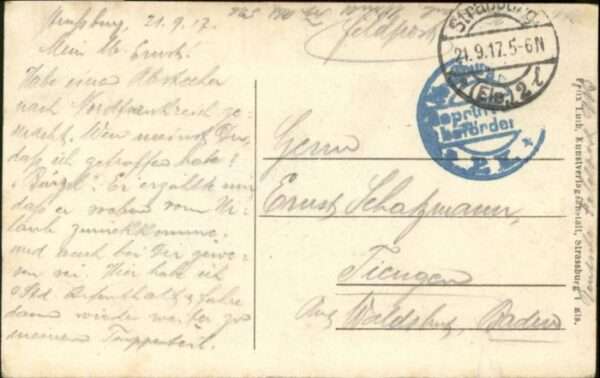 Strassburg, 21.9.17.
Mein lb. Ernst!
Habe einen Abstecher
nach Nordfrankreich ge-
macht. Wen meinst Du,
daß ich getroffen habe?
"Bürgel". Er erzählte mir
daß er soeben vom Ur-
laub zurückkomme
und auch bei Dir gewe-
sen sei. Hier habe ich
Std. Aufenthalt & fahre
dann wieder weiter zu
meinem Truppenteil.
Feldpost
Strassburg
21.9.17.5-6N
(Els.) 2
Geprüft
befördern
Herrn
Ernst Schatzmann,
Tiengen
Amt Waldshut, Baden
Fritz Luib, Kunstverlagsanstalt, Strassburg i. Els.